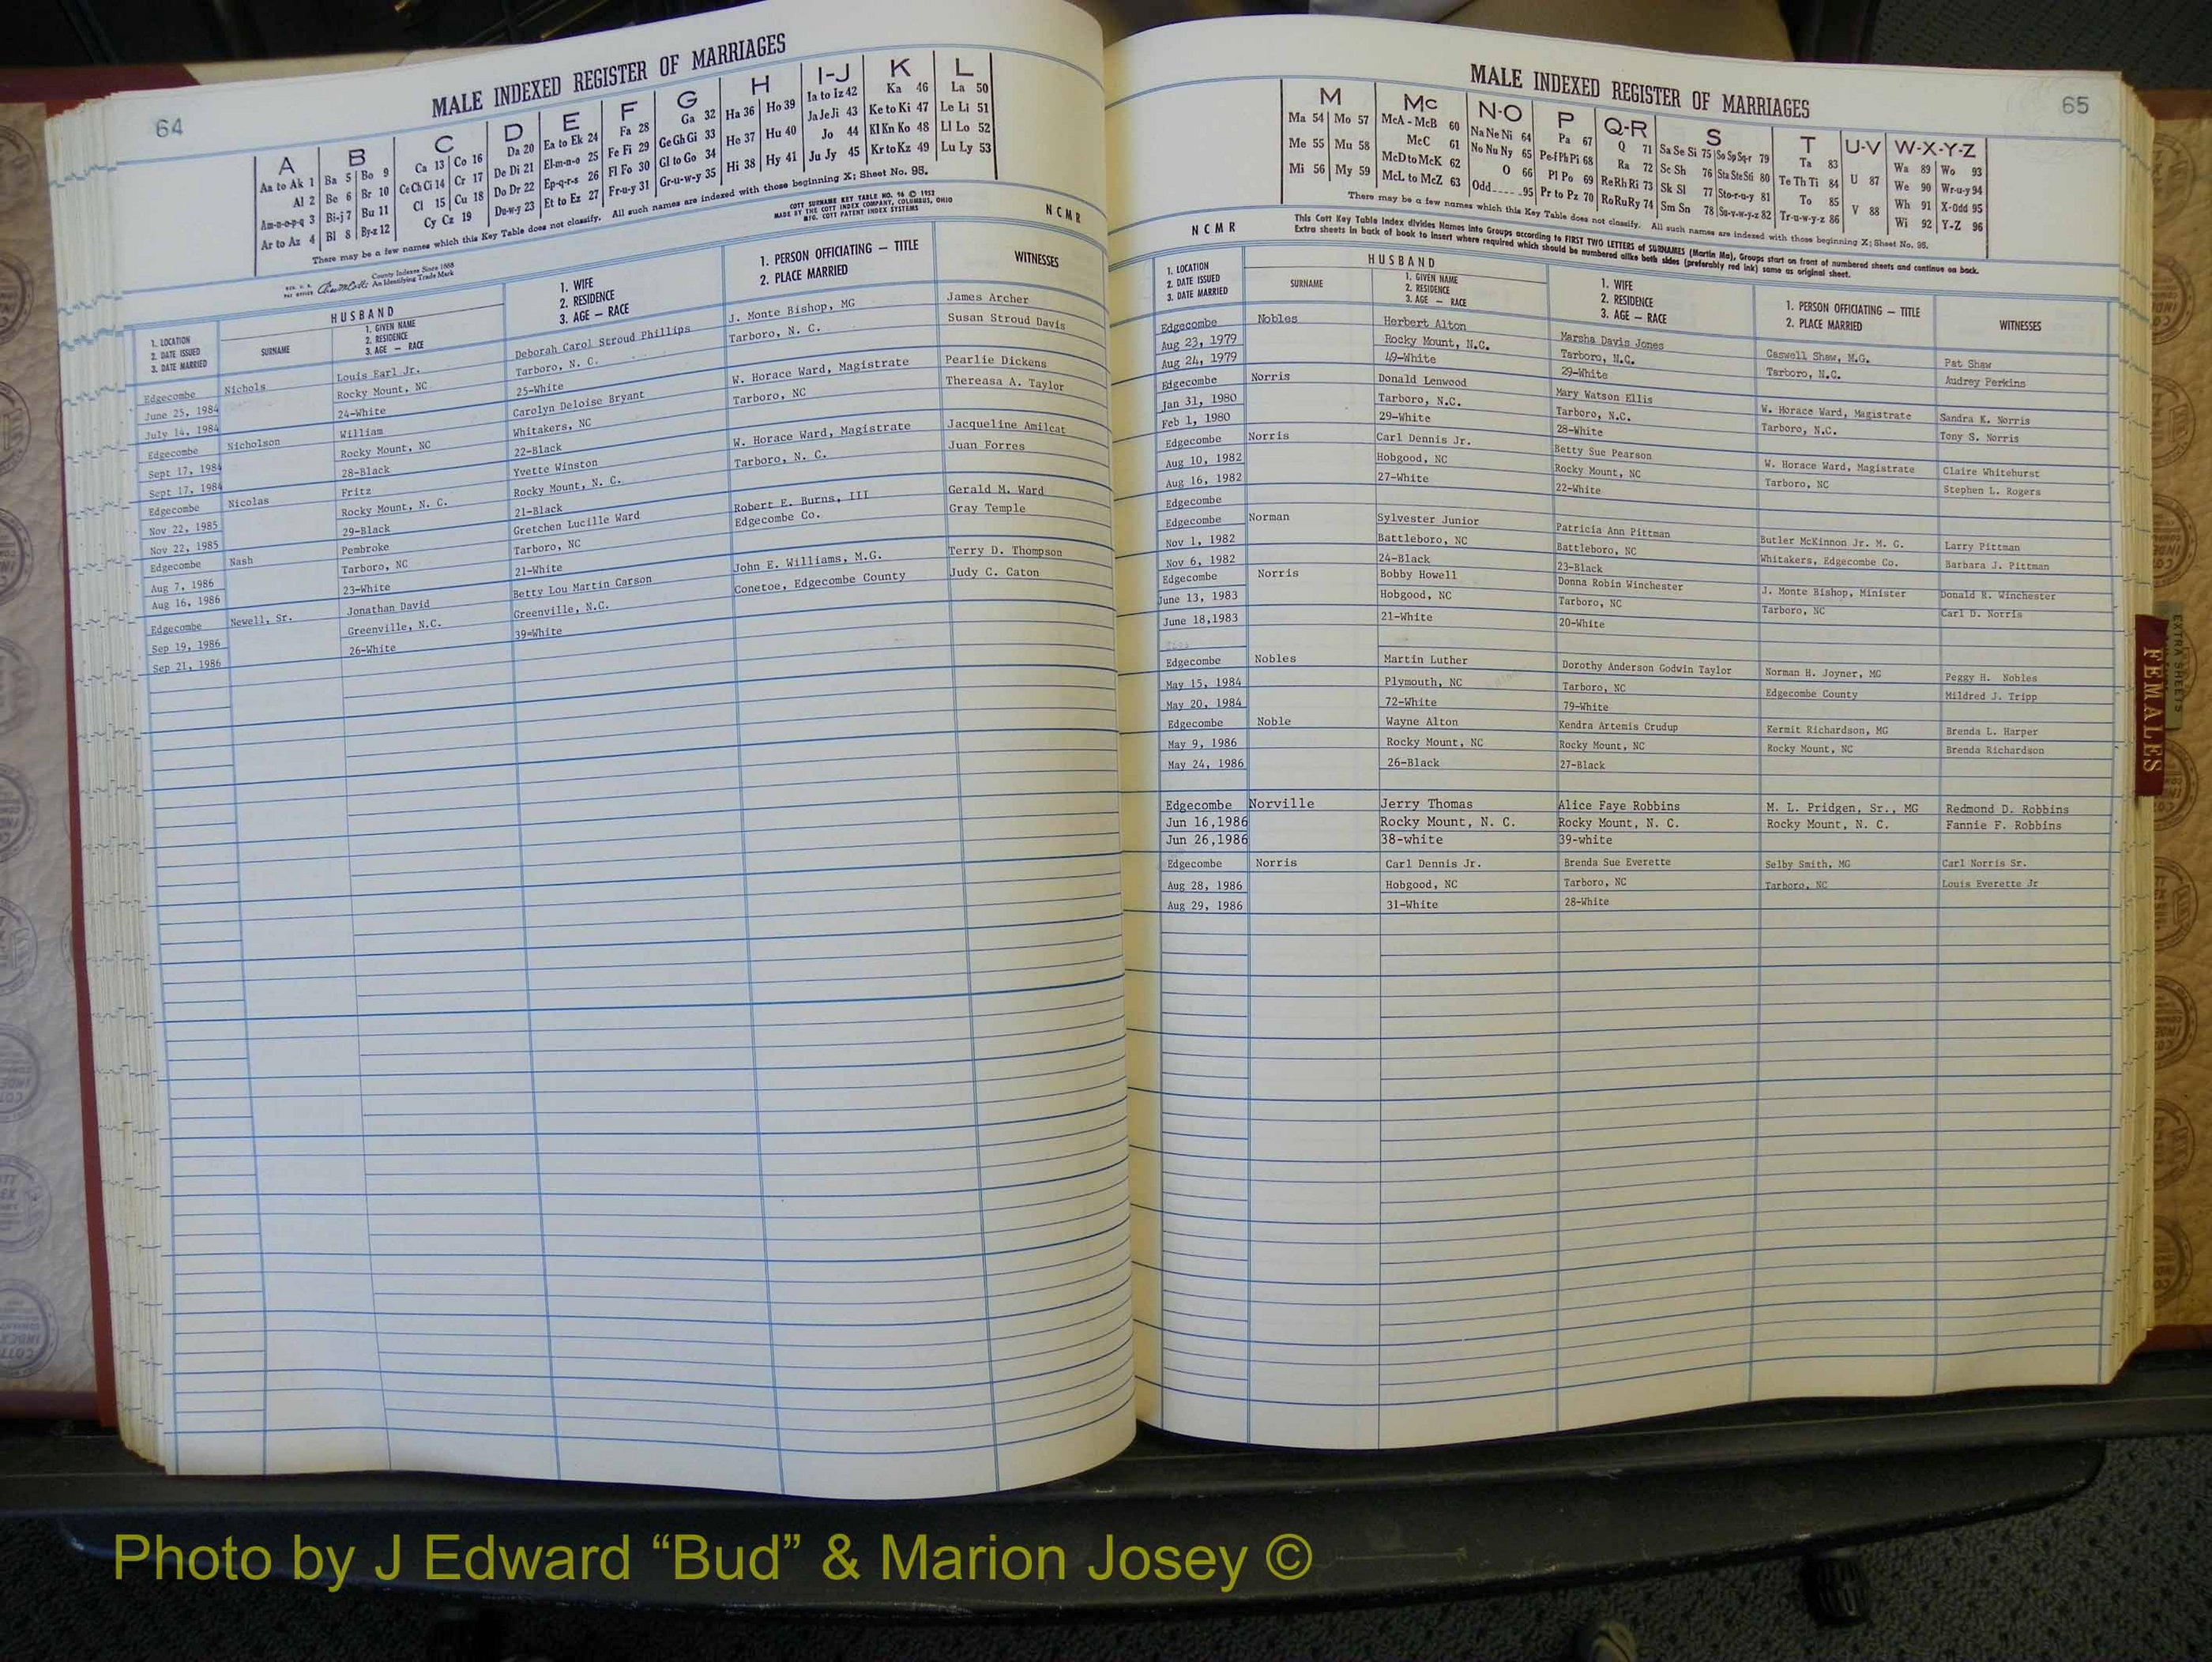 64
MALE INDEXED REGISTER OF MARRIAGES
A B C D E F G H I-J K L
Aa to Ak 1 Ba 5 Bo 9 Ca 13 Co 16 Da 20 Ea to Ek 24 Fa 28 Ga 32 Ha 36 Ho 39 Ia to Iz 42 Ka 46 La 50
Al 2 Be 6 Br 10 Ce Ch Ci 14 Cr 17 De Di 21 El-m-n-o 25 Fe Fi 29 Ge Gh Gi 33 He 37 Hu 40 Ja Je Ji 43 Ke to Ki 47 Le Li 51
Am-n-o-p-q 3 Bi-j 7 Bu 11 Cl 15 Cu 18 Do Dr 22 Ep-q-r-s 26 Fl Fo 30 Gl to Go 34 Hi 38 Hy 41 Jo 44 Kl Kn Ko 48 Ll Lo 52
Ar to Az 4 Bl 8 By-z 12 Cy Cz 19 Du-w-y 23 Et to Ez 27 Fr-u-y 31 Gr-u-w-y 35 Ju Jy 45 Kr to Kz 49 Lu Ly 53
There may be a few names which this Key Table does not classify. All such names are indexed with those beginning X; Sheet No. 95.
County Indexes Since 1888
An Identifying Trade Mark
COTT SURNAME KEY TABLE NO. 96 © 1952
MADE BY THE COTT INDEX COMPANY, COLUMBUS, OHIO
MFG. COTT PATENT INDEX SYSTEMS
NCMR
1. LOCATION
2. DATE ISSUED
3. DATE MARRIED
HUSBAND
SURNAME
1. GIVEN NAME
2. RESIDENCE
3. AGE — RACE
1. WIFE
2. RESIDENCE
3. AGE — RACE
1. PERSON OFFICIATING — TITLE
2. PLACE MARRIED
WITNESSES
Edgecombe Nichols Louis Earl Jr. Deborah Carol Stroud Phillips J. Monte Bishop, MG James Archer
June 25, 1984 Rocky Mount, NC Tarboro, N. C. Tarboro, N. C. Susan Stroud Davis
July 14, 1984 24-White 25-White
Edgecombe Nicholson William Carolyn Deloise Bryant W. Horace Ward, Magistrate Pearlie Dickens
Sept 17, 1984 Rocky Mount, NC Whitakers, NC Tarboro, NC Thereasa A. Taylor
Sept 17, 1984 28-Black 22-Black
Edgecombe Nicolas Fritz Yvette Winston W. Horace Ward, Magistrate Jacqueline Amilcat
Nov 22, 1985 Rocky Mount, N. C. Rocky Mount, N. C. Tarboro, N. C. Juan Forres
Nov 22, 1985 29-Black 21-Black
Edgecombe Nash Pembroke Gretchen Lucille Ward Robert E. Burns, III Gerald M. Ward
Aug 7, 1986 Tarboro, NC Tarboro, NC Edgecombe Co. Gray Temple
Aug 16, 1986 23-White 21-White
Edgecombe Newell, Sr. Jonathan David Betty Lou Martin Carson John E. Williams, M.G. Terry D. Thompson
Sep 19, 1986 Greenville, N.C. Greenville, N.C. Conetoe, Edgecombe County Judy C. Caton
Sep 21, 1986 26-White 39=White
65
MALE INDEXED REGISTER OF MARRIAGES
M Mc N-O P Q-R S T U-V W-X-Y-Z
Ma 54 Mo 57 McA - McB 60 Na Ne Ni 64 Pa 67 Q 71 Sa Se Si 75 So Sp Sq-r 79 Ta 83 U 87 Wa 89 Wo 93
Me 55 Mu 58 McC 61 No Nu Ny 65 Pe-f Ph Pi 68 Ra 72 Sc Sh 76 Sta Ste Sti 80 Te Th Ti 84 V 88 We 90 Wr-u-y 94
Mi 56 My 59 McD to McK 62 O 66 Pl Po 69 Re Rh Ri 73 Sk Sl 77 Sto-r-u-y 81 To 85 Wh 91 X-Odd 95
McL to McZ 63 Odd 95 Pr to Pz 70 Ro Ru Ry 74 Sm Sn 78 Su-v-w-y-z 82 Tr-u-w-y-z 86 Wi 92 Y-Z 96
There may be a few names which this Key Table does not classify. All such names are indexed with those beginning X; Sheet No. 95.
NCMR
This Cott Key Table Index divides Names into Groups according to FIRST TWO LETTERS of SURNAMES (Martin Ma), Groups start on front of numbered sheets and continue on back.
Extra sheets in back of book to insert where required which should be numbered alike both sides (preferably red ink) same as original sheet.
1. LOCATION
2. DATE ISSUED
3. DATE MARRIED
HUSBAND
SURNAME
1. GIVEN NAME
2. RESIDENCE
3. AGE — RACE
1. WIFE
2. RESIDENCE
3. AGE — RACE
1. PERSON OFFICIATING — TITLE
2. PLACE MARRIED
WITNESSES
Edgecombe Nobles Herbert Alton Marsha Davis Jones Caswell Shaw, M.G. Pat Shaw
Aug 23, 1979 Rocky Mount, N.C. Tarboro, N.C. Tarboro, N.C. Audrey Perkins
Aug 24, 1979 49-White 29-White
Edgecombe Norris Donald Lenwood Mary Watson Ellis W. Horace Ward, Magistrate Sandra K. Norris
Jan 31, 1980 Tarboro, N.C. Tarboro, N.C. Tarboro, N.C. Tony S. Norris
Feb 1, 1980 29-White 28-White
Edgecombe Norris Carl Dennis Jr. Betty Sue Pearson W. Horace Ward, Magistrate Claire Whitehurst
Aug 10, 1982 Hobgood, NC Rocky Mount, NC Tarboro, NC Stephen L. Rogers
Aug 16, 1982 27-White 22-White
Edgecombe
Edgecombe Norman Sylvester Junior Patricia Ann Pittman Butler McKinnon Jr. M. G. Larry Pittman
Nov 1, 1982 Battleboro, NC Battleboro, NC Whitakers, Edgecombe Co. Barbara J. Pittman
Nov 6, 1982 24-Black 23-Black
Edgecombe Norris Bobby Howell Donna Robin Winchester J. Monte Bishop, Minister Donald R. Winchester
June 13, 1983 Hobgood, NC Tarboro, NC Tarboro, NC Carl D. Norris
June 18,1983 21-White 20-White
Edgecombe Nobles Martin Luther Dorothy Anderson Godwin Taylor Norman H. Joyner, MG Peggy H. Nobles
May 15, 1984 Plymouth, NC Tarboro, NC Edgecombe County Mildred J. Tripp
May 20, 1984 72-White 79-White
Edgecombe Noble Wayne Alton Kendra Artemis Crudup Kermit Richardson, MG Brenda L. Harper
May 9, 1986 Rocky Mount, NC Rocky Mount, NC Rocky Mount, NC Brenda Richardson
May 24, 1986 26-Black 27-Black
Edgecombe Norville Jerry Thomas Alice Faye Robbins M. L. Pridgen, Sr., MG Redmond D. Robbins
Jun 16,1986 Rocky Mount, N. C. Rocky Mount, N. C. Rocky Mount, N. C. Fannie F. Robbins
Jun 26,1986 38-white 39-white
Edgecombe Norris Carl Dennis Jr. Brenda Sue Everette Selby Smith, MG Carl Norris Sr.
Aug 28, 1986 Hobgood, NC Tarboro, NC Tarboro, NC Louis Everette Jr
Aug 29, 1986 31-White 28-White
EXTRA SHEETS
FEMALES
Photo by J Edward “Bud” & Marion Josey ©